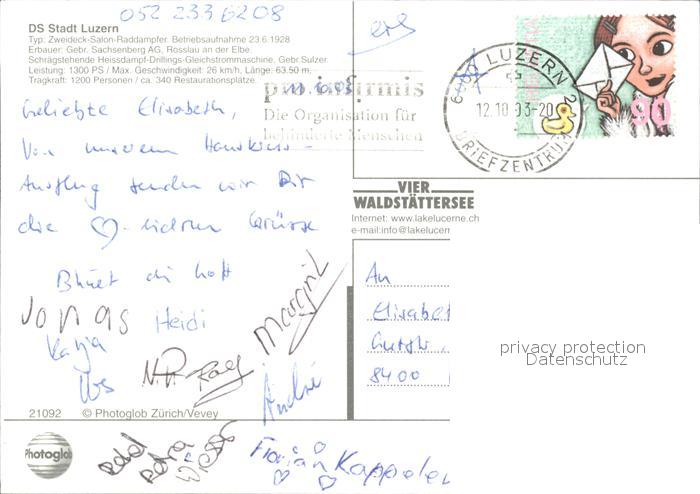 052 233 6208
DS Stadt Luzern
Typ: Zweideck-Salon-Raddampfer. Betriebsaufnahme 23.6.1928
Erbauer: Gebr. Sachsenberg AG, Rosslau an der Elbe.
Schrägstehende Heissdampf-Drillings-Gleichstrommaschine, Gebr.Sulzer.
Leistung: 1300 PS / Max. Geschwindigkeit: 26 km/h, Länge: 63.50 m,
Tragkraft: 1200 Personen / ca. 340 Restaurationsplätze.
pro infirmis
Die Organisation für
behinderte Menschen
LUZERN 2
12.10.03-20
BRIEFZENTRUM
90
Geliebte Elisabeth,
Von unserem
Ausflug senden wir Dir
die ♡-lichen Grüsse
Bhüet di Gott
Jonas Heidi Margrit
Katja
Urs N.P. Ralf André
VIER
WALDSTÄTTERSEE
Internet: www.lakelucerne.ch
e-mail:info@lakelucern
An
Elisabet
8400
privacy protection
Datenschutz
21092 © Photoglob Zürich/Vevey
Photoglob
Petra
Florian Kappeler